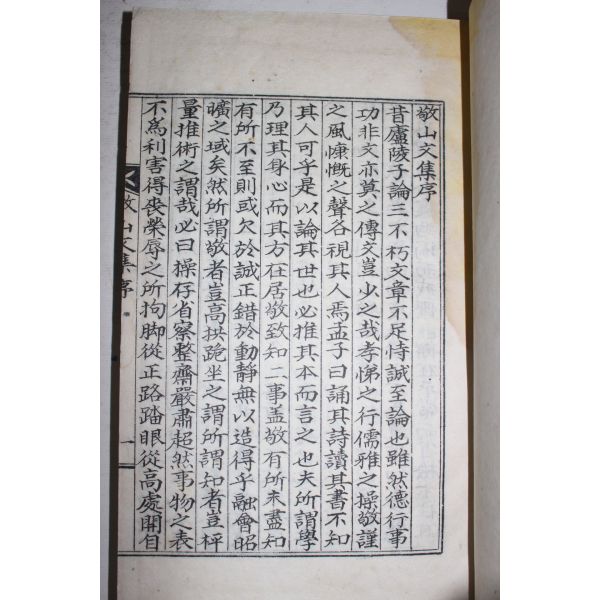 敬山文集序
昔廬陵子論三不朽文章不足恃誠至論也雖然德行事
功非文亦莫之傳文豈少之哉孝悌之行儒雅之操敬謹
之風慷慨之聲各視其人焉孟子曰誦其詩讀其書不知
其人可乎是以論其世也必推其本而言之也夫所謂學
乃理其身心而其方在居敬致知二事盖敬有所未盡知
有所不至則或欠於誠正錯於動靜無以造得乎融會昭
曠之域矣然所謂敬者豈高拱跪坐之謂所謂知者豈枰
量推術之謂哉必曰操存省察整齋嚴肅超然事物之表
不爲利害得丧榮辱之所拘脚從正路踏眼從高處開自
敬山文集序
一